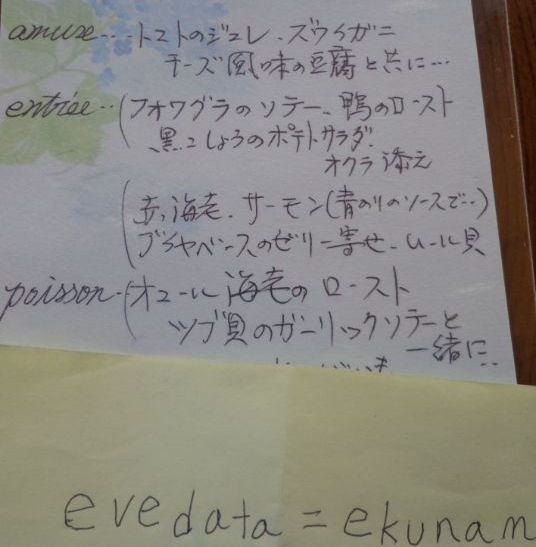 amuse... トマトのジュレ、ズワイガニ
チーズ風味の豆腐と共に…
entrée..(フォワグラのソテー、鴨のロースト
黒こしょうのポテトサラダ
オクラ添え
(赤海老、サーモン(青のりのソースで..)
ブイヤベースのゼリー寄せ、ムール貝
poisson.(オマール海老のロースト
ツブ貝のガーリックソテーと
一緒に..
evedata = ekunan